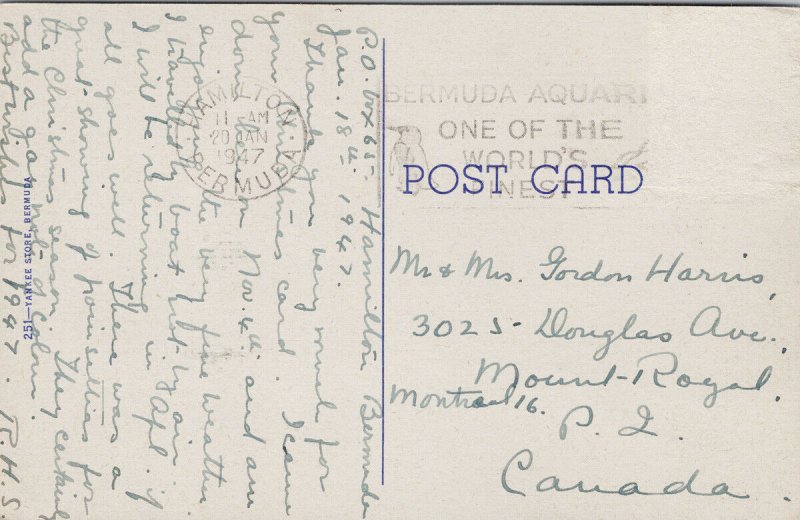 P.O. Box 65 - Hamilton Bermuda
Jan. 18th. 1947.
Thank you very much for
your Christmas card. I came
down here on Nov. 4th. and am
enjoying the very fine weather
I travelled by boat not by air.
I will be returning in Apl. if
all goes well. There was a
great showing of poinsettias for
the Christmas season. They certainly
add a good color.
Best wishes for 1947. R.H.S.
251—YANKEE STORE, BERMUDA
HAMILTON
11-AM
20 JAN
1947
BERMUDA
BERMUDA AQUARI
ONE OF THE
WORLD'S
FINEST
POST CARD
Mr & Mrs. Gordon Harris,
3025 - Douglas Ave.,
Mount-Royal,
Montreal 16.
P. Q.
Canada.